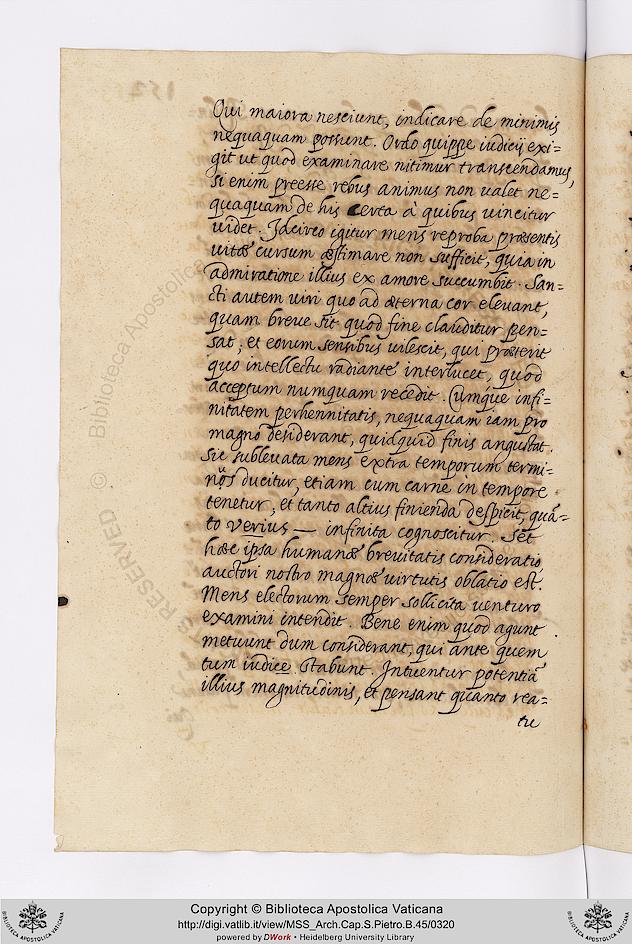 Qui maiora nesciunt, indicare de minimis
nequaquam possunt. Ordo quippe iudicij exi=
git ut quod examinare nitimur transcendamus,
si enim preesse rebus animus non ualet ne=
quaquam de his certa à quibus uincitur
uidet. Idcirco igitur mens reproba præsentis
uitæ cursum æstimare non sufficit, quia in
admiratione illius ex amore succumbit. San=
cti autem uiri quo ad æterna cor eleuant,
quam breue sit quod fine clauditur pen=
sat, et eorum sensibus uilescit, qui præterit
quo intellectu radiante interlucet, quod
acceptum numquam recedit. Cumque infi=
nitatem perhennitatis, nequaquam iam pro
magno desiderant, quidquid finis angustat.
Sic subleuata mens extra temporum termi=
nos ducitur, etiam cum carne in tempore
tenetur, et tanto altius finienda despicit, quā=
to verius — infinita cognoscitur. Set
hæc ipsa humanæ breuitatis consideratio,
auctori nostro magnæ uirtutis oblatio est.
Mens electorum semper sollicita uenturo
examini intendit. Bene enim quod agunt
metuunt dum considerant, qui ante quem
tum iudice stabunt. Intuentur potentiā
illius magnitudinis, et pensant quanto rea=
tu
Biblioteca Apostolica
©
RESERVED
Copyright © Biblioteca Apostolica Vaticana
http://digi.vatlib.it/view/MSS_Arch.Cap.S.Pietro.B.45/0320
powered by DWork • Heidelberg University Library